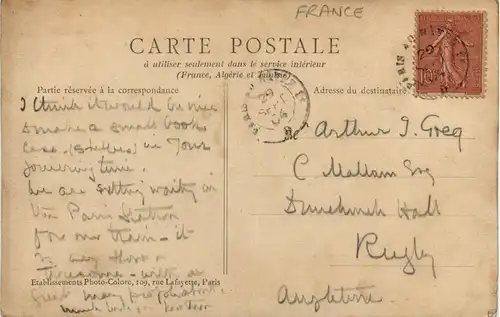 FRANCE
CARTE POSTALE
à utiliser seulement dans le service intérieur
(France, Algérie et Tunisie)
Partie réservée à la correspondance
Adresse du destinataire
I think it would be nice
to make a small book
case (shelves) in your
journeying time.
We are sitting waiting in
Paris Station
for our train - it
is very hot &
tiresome - with a
great many people about.
Arthur J. Greg
C Mallam Esq
Dunchurch Hall
Rugby
Angleterre
Etablissements Photo-Colore, 109, rue Lafayette, Paris
PARIS
29
10